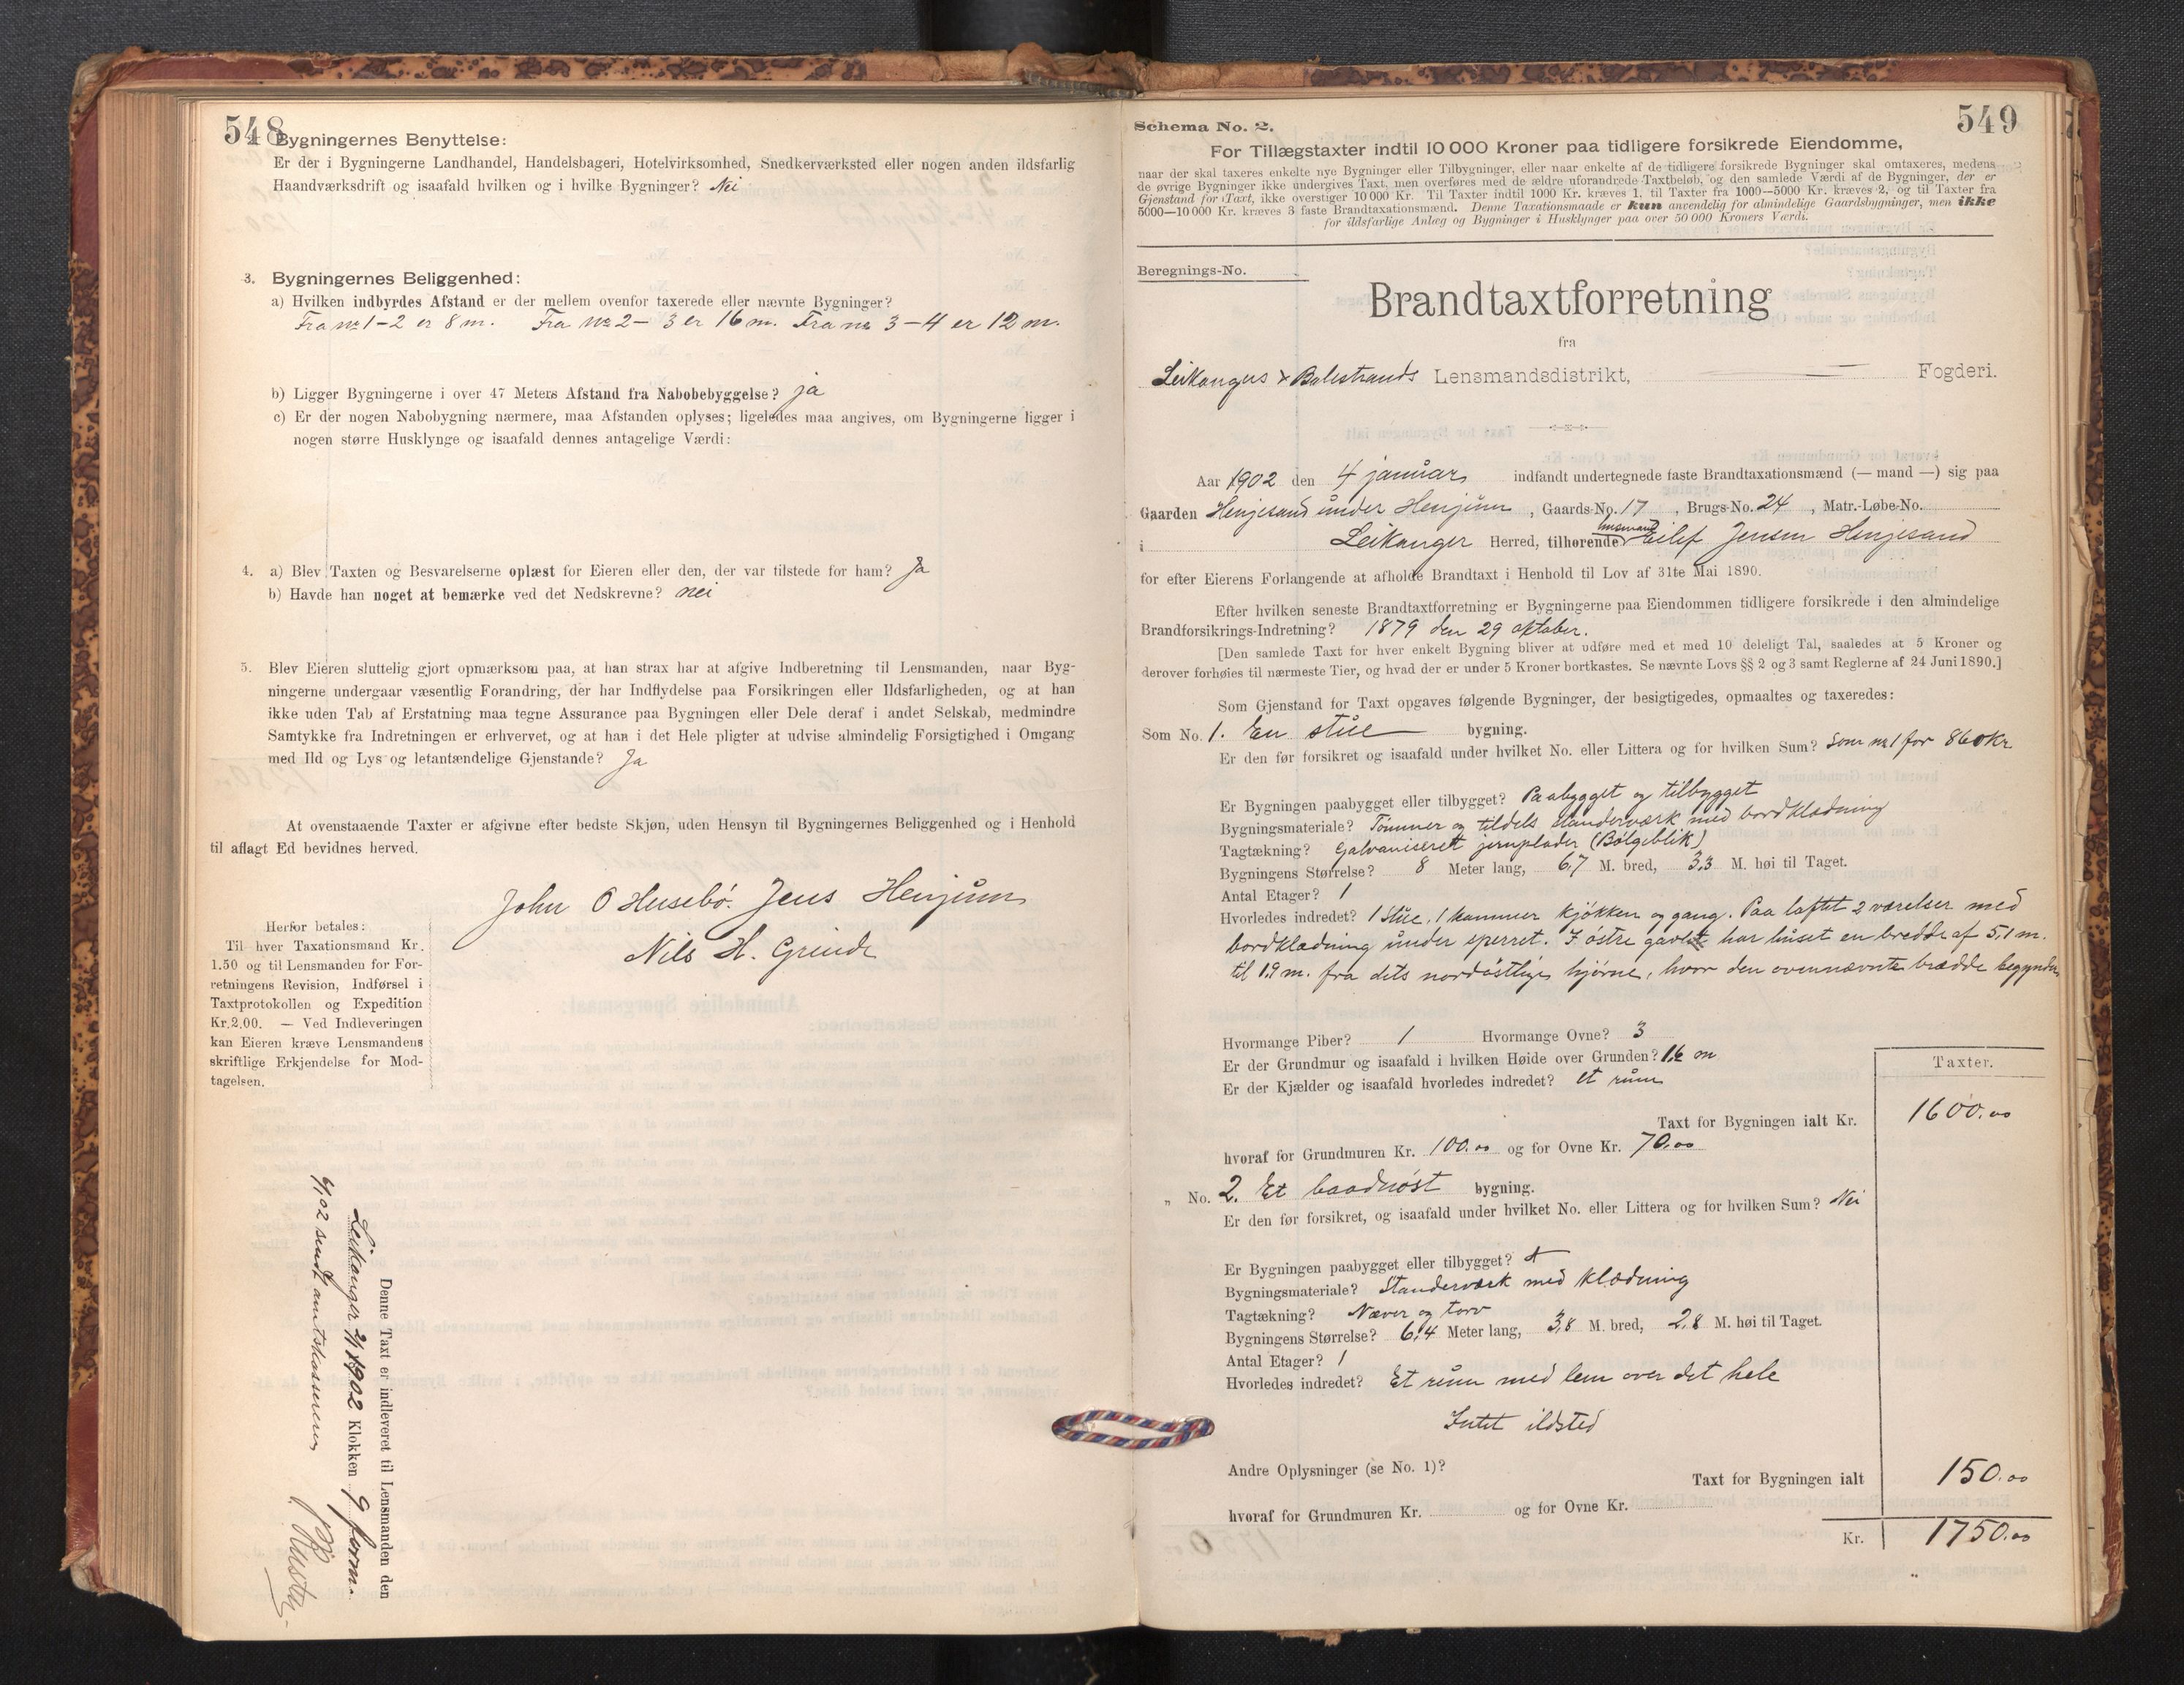 548
Bygningernes Benyttelse:
Er der i Bygningerne Landhandel, Handelsbageri, Hotelvirksomhed, Snedkerværksted eller nogen anden ildsfarlig
Haandværksdrift og isaafald hvilken og i hvilke Bygninger? Nei
3. Bygningernes Beliggenhed:
a) Hvilken indbyrdes Afstand er der mellem ovenfor taxerede eller nævnte Bygninger?
Fra no 1-2 er 8 m. Fra No 2-3 er 16 m. Fra no 3-4 er 12 m.
b) Ligger Bygningerne i over 47 Meters Afstand fra Nabobebyggelse? ja
c) Er der nogen Nabobygning nærmere, maa Afstanden oplyses; ligeledes maa angives, om Bygningerne ligger i
nogen større Husklynge og isaafald dennes antagelige Værdi:
4. a) Blev Taxten og Besvarelserne oplæst for Eieren eller den, der var tilstede for ham? Ja
b) Havde han noget at bemærke ved det Nedskrevne? nei
5. Blev Eieren sluttelig gjort opmærksom paa, at han strax har at afgive Indberetning til Lensmanden, naar Byg-
ningerne undergaar væsentlig Forandring, der har Indflydelse paa Forsikringen eller Ildsfarligheden, og at han
ikke uden Tab af Erstatning maa tegne Assurance paa Bygningen eller Dele deraf i andet Selskab, medmindre
Samtykke fra Indretningen er erhvervet, og at han i det Hele pligter at udvise almindelig Forsigtighed i Omgang
med Ild og Lys og letantændelige Gjenstande? Ja
At ovenstaaende Taxter er afgivne efter bedste Skjøn, uden Hensyn til Bygningernes Beliggenhed og i Henhold
til aflagt Ed bevidnes herved.
John O Husebö. Jens Henjum
Nils H. Grinde
Herfor betales:
Til hver Taxationsmand Kr.
1.50 og til Lensmanden for For-
retningens Revision, Indførsel i
Taxtprotokollen og Expedition
Kr. 2.00. — Ved Indleveringen
kan Eieren kræve Lensmandens
skriftlige Erkjendelse for Mod-
tagelsen.
Denne Taxt er indleveret til Lensmanden den
Leikanger 1902 Klokken 9 form.
02 sendt amtskasseren
549
Schema No. 2.
For Tillægstaxter indtil 10 000 Kroner paa tidligere forsikrede Eiendomme,
naar der skal taxeres enkelte nye Bygninger eller Tilbygninger, eller naar enkelte af de tidligere forsikrede Bygninger skal omtaxeres, medens
de øvrige Bygninger ikke undergives Taxt, men overføres med de ældre uforandrede Taxtbeløb, og den samlede Værdi af de Bygninger, der er
Gjenstand for Taxt, ikke overstiger 10 000 Kr. Til Taxter indtil 1000 Kr. kræves 1, til Taxter fra 1000—5000 Kr. kræves 2, og til Taxter fra
5000—10 000 Kr. kræves 3 faste Brandtaxationsmænd. Denne Taxationsmaade er kun anvendelig for almindelige Gaardsbygninger, men ikke
for ildsfarlige Anlæg og Bygninger i Husklynger paa over 50 000 Kroners Værdi.
Beregnings-No.
Brandtaxtforretning
fra
Leikangers & Balestrands Lensmandsdistrikt, Fogderi.
Aar 1902 den 4 januar indfandt undertegnede faste Brandtaxationsmænd (— mand —) sig paa
Gaarden Henjesand under Henjum, Gaards-No. 17, Brugs-No. 24, Matr.-Løbe-No.
i Leikanger Herred, tilhørende husmand Eilef Jensen Henjesand
for efter Eierens Forlangende at afholde Brandtaxt i Henhold til Lov af 31te Mai 1890.
Efter hvilken seneste Brandtaxtforretning er Bygningerne paa Eiendommen tidligere forsikrede i den almindelige
Brandforsikrings-Indretning? 1879 den 29 oktober.
[Den samlede Taxt for hver enkelt Bygning bliver at udføre med et med 10 deleligt Tal, saaledes at 5 Kroner og
derover forhøies til nærmeste Tier, og hvad der er under 5 Kroner bortkastes. Se nævnte Lovs §§ 2 og 3 samt Reglerne af 24 Juni 1890.]
Som Gjenstand for Taxt opgaves følgende Bygninger, der besigtigedes, opmaaltes og taxeredes:
Som No. 1. En stue bygning.
Er den før forsikret og isaafald under hvilket No. eller Littera og for hvilken Sum? Som no 1 for 860 Kr.
Er Bygningen paabygget eller tilbygget? Paabygget og tilbygget
Bygningsmateriale? Tømmer og tildels standerværk med bordklædning
Tagtækning? Galvaniseret jernplader (Bölgeblik)
Bygningens Størrelse? 8 Meter lang, 6,7 M. bred, 3,3 M. høi til Taget.
Antal Etager? 1
Hvorledes indredet? 1 stue, 1 kammer kjökken og gang. Paa loftet 2 værelser med
bordklædning under sperret. I östre gavl har huset en bredde af 5,1 m.
til 1.9 m. fra dets nordöstlige hjörne, hvor den ovennævnte brædde begynder
Hvormange Piber? 1 Hvormange Ovne? 3
Er der Grundmur og isaafald i hvilken Høide over Grunden? 1,6 m
Er der Kjælder og isaafald hvorledes indredet? et rum
Taxter.
Taxt for Bygningen ialt Kr. 1600.00
hvoraf for Grundmuren Kr. 100.00 og for Ovne Kr. 70.00
„ No. 2. Et baadnöst bygning.
Er den før forsikret, og isaafald under hvilket No. eller Littera og for hvilken Sum? Nei
Er Bygningen paabygget eller tilbygget?
Bygningsmateriale? Standerværk med klædning
Tagtækning? Næver og torv
Bygningens Størrelse? 6,4 Meter lang, 3,8 M. bred, 2,8 M. høi til Taget.
Antal Etager? 1
Hvorledes indredet? Et rum med lem over det hele
Intet ildsted
Andre Oplysninger (se No. 1)?
Taxt for Bygningen ialt 150.00
hvoraf for Grundmuren Kr. og for Ovne Kr.
Kr. 1750.00